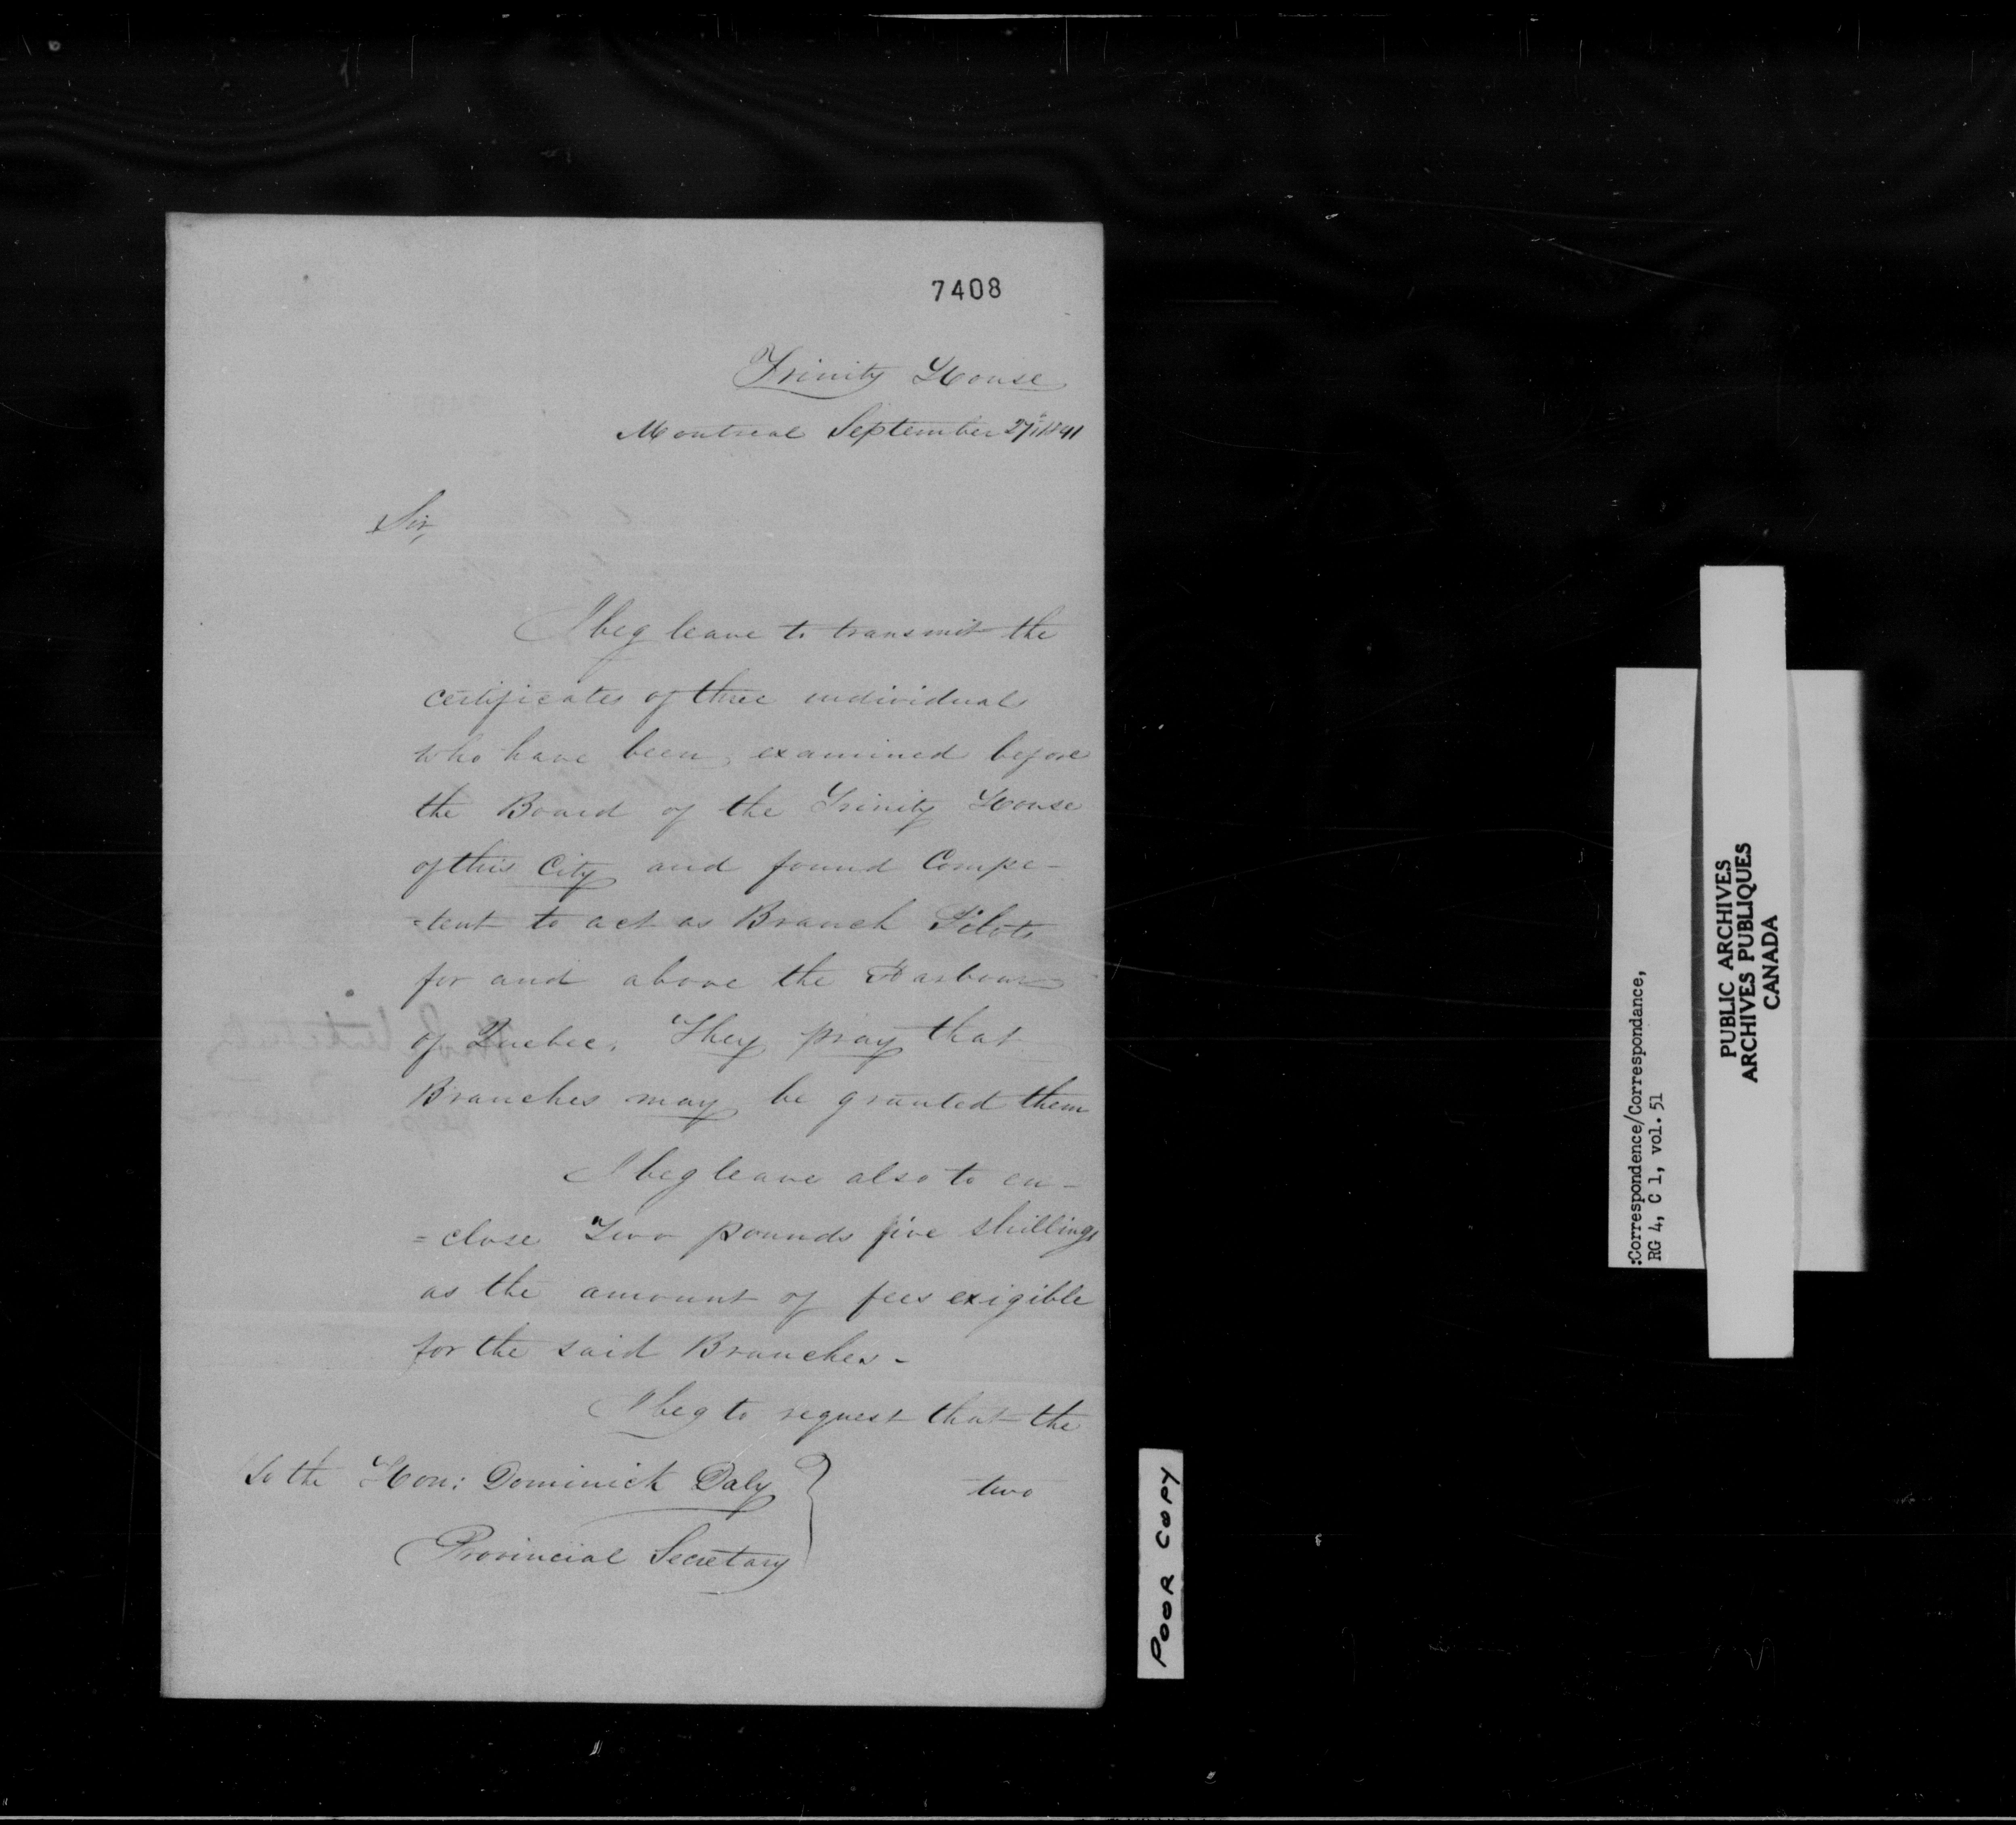 7408
Trinity House
Montreal September 27th 1841
Sir,
I beg leave to transmit the
certificates of three individuals
who have been examined before
the Board of the Trinity House
of this City and found Compe-
=tent to act as Branch Pilots
for and above the Harbour
of Quebec. They pray that
Branches may be granted them
I beg leave also to en-
=close Two pounds five shillings
as the amount of fees exigible
for the said Branches -
I beg to request that the
two
To the Hon: Dominick Daly
Provincial Secretary
POOR COPY
:Correspondence/Correspondance,
RG 4, C 1, vol. 51
PUBLIC ARCHIVES
ARCHIVES PUBLIQUES
CANADA